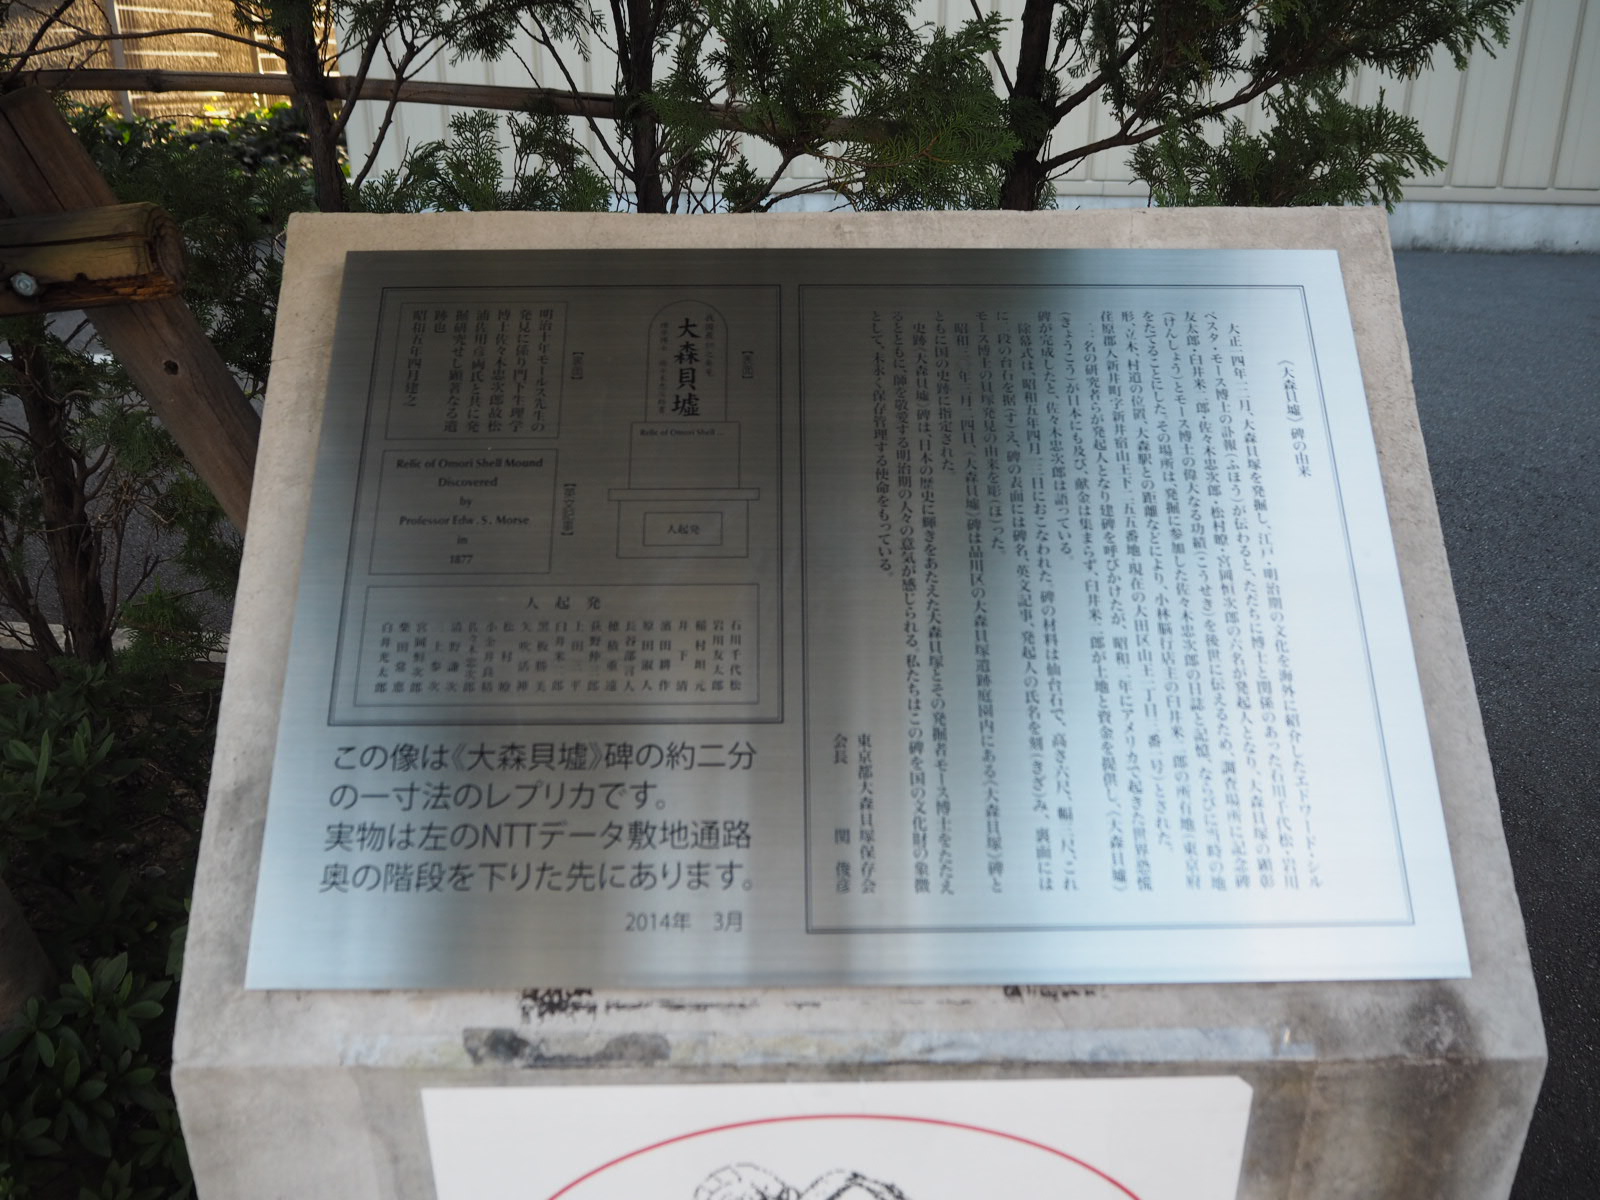 《大森貝墟》碑の由来
大正一四年一二月、大森貝塚を発掘し、江戸・明治期の文化を海外に紹介したエドワード・シル
ベスタ・モース博士の訃報(ふほう)が伝わると、ただちに博士と関係のあった石川千代松・岩川
友太郎・臼井米二郎・佐々木忠次郎・松村瞭・宮岡恒次郎の六名が発起人となり、大森貝塚の顕彰
(けんしょう)とモース博士の偉大なる功績(こうせき)を後世に伝えるため、調査場所に記念碑
をたてることにした。その場所は、発掘に参加した佐々木忠次郎の日誌と記憶、ならびに当時の地
形、立木、村道の位置、大森駅との距離などにより、小林脳行店主の臼井米二郎の所有地(東京府
荏原郡入新井町字新井宿山王下
二名の研究者らが発起人となり建碑を呼びかけたが、昭和二年にアメリカで起きた世界恐慌
(きょうこう)が日本にも及び、献金は集まらず、臼井米二郎が土地と資金を提供し、《大森貝墟》
碑が完成したと、佐々木忠次郎は語っている。
除幕式は、昭和五年四月一三日におこなわれた。碑の材料は仙台石で、高さ六尺、幅三尺、これ
に二段の台石を据(す)え、碑の表面には碑名、英文記事、発起人の氏名を刻(きざ)み、裏面には
モース博士の貝塚発見の由来を彫(ほ)った。
昭和三〇年三月二四日、《大森貝墟》碑は品川区の大森貝塚遺跡庭園内にある《大森貝塚》碑と
ともに国の史跡に指定された。
史跡《大森貝墟》碑は、日本の歴史に輝きをあたえた大森貝塚とその発掘者モース博士をたたえ
るとともに、師を敬愛する明治期の人々の意気が感じられる。私たちはこの碑を国の文化財の象徴
として、末永く保存管理する使命をもっている。
東京都大森貝塚保存会
会長 関 俊彦
大森貝墟
Relic of Omori Shell ...
人起発
明治十年モールス先生の
発見に係り門下生理学
博士佐々木忠次郎故松
浦佐用彦両氏と共に発
掘研究せし顕著なる遺
跡也
昭和五年四月建之
【英文記事】
Relic of Omori Shell Mound
Discovered
by
Professor Edw. S. Morse
in
1877
人起発
石川千代松
岩川友太郎
稲村坦元
井下清
濱田耕作
原田淑人
長谷部言人
穂積重遠
荻野仲三郎
上田三平
臼井米二郎
黒板勝美
矢吹活禅
松村瞭
小金井良精
佐々木忠次郎
清野謙次
三上参次
宮岡恒次郎
柴田常恵
白井光太郎
この像は《大森貝墟》碑の約二分
の一寸法のレプリカです。
実物は左のNTTデータ敷地通路
奥の階段を下りた先にあります。
2014年 3月